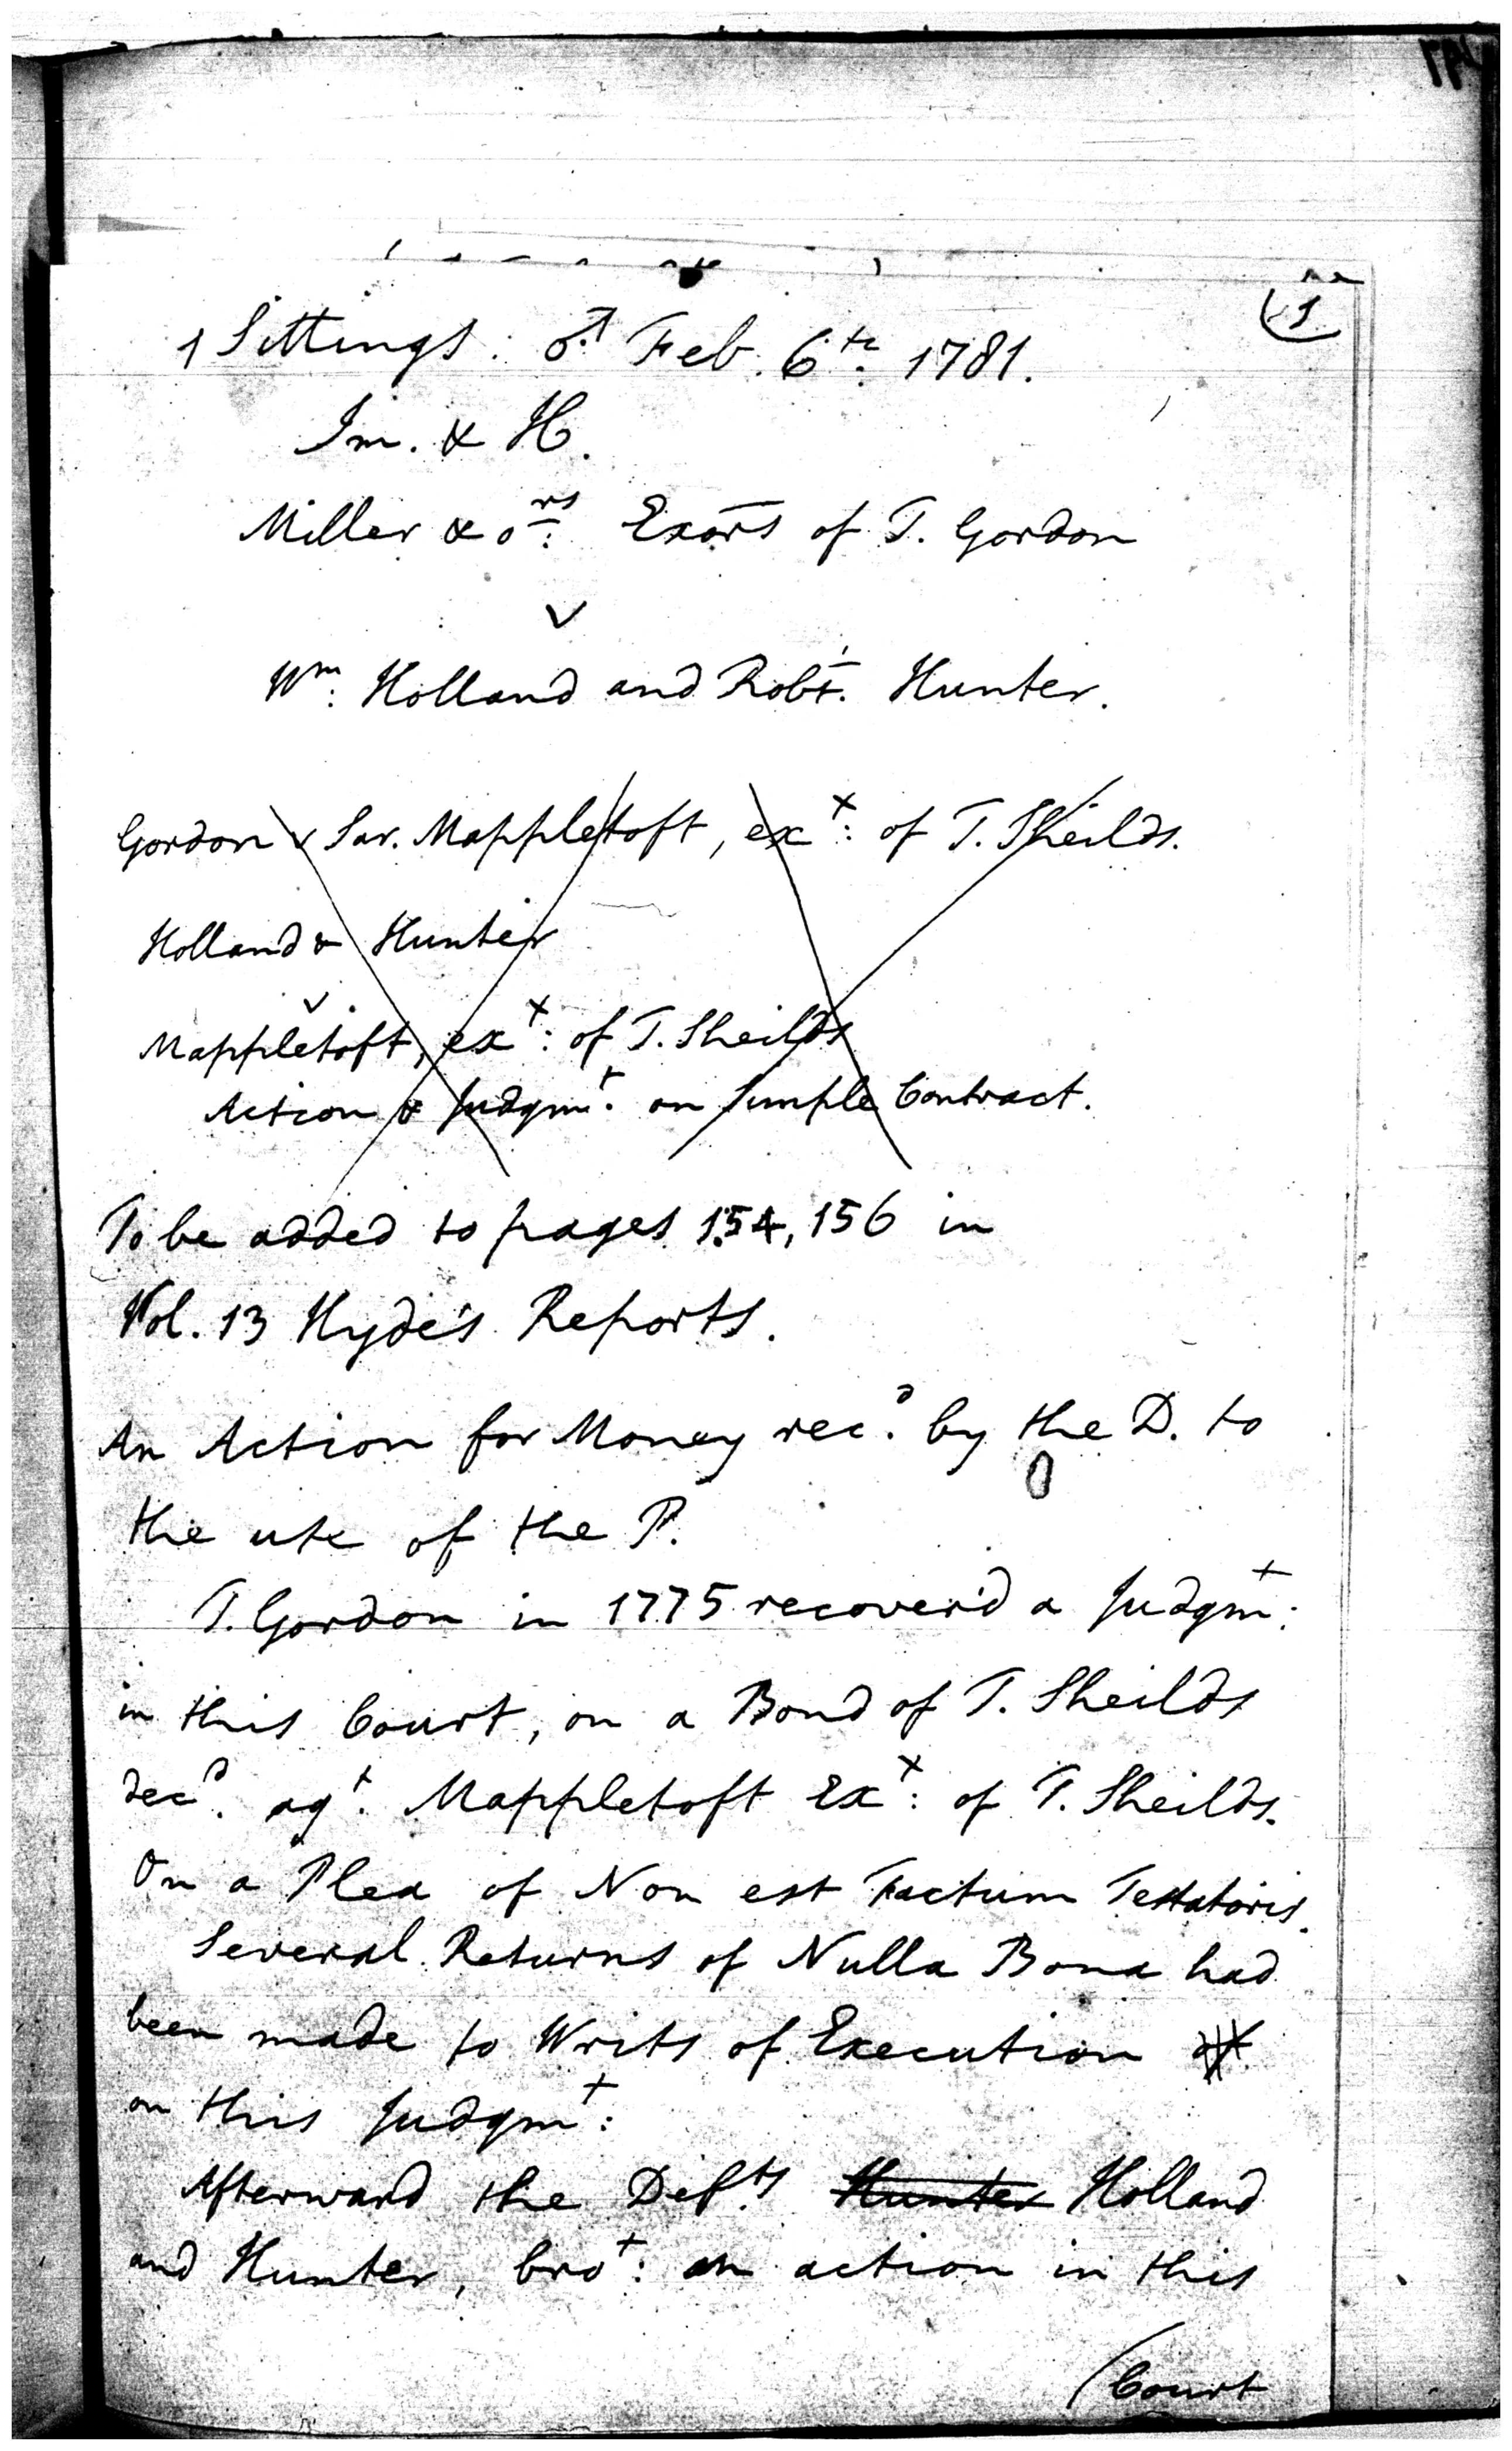 (1
1 Sittings: ♂ Feb. 6th: 1781.
Im. & H.
Miller & ors: Exors of T. Gordon
v
Wm: Holland and Robt. Hunter.
Gordon v Sar. Mappletoft, exx: of T. Sheilds.
Holland & Hunter
v
Mappletoft, exx: of T. Sheilds
Action & Judgmt: on Simple Contract.
To be added to pages 154, 156 in
Vol. 13 Hyde's Reports.
An Action for Money recd. by the D. to
the use of the P.
T. Gordon in 1775 recover'd a Judgmt:
in this Court, on a Bond of T. Sheilds
decd. agt. Mappletoft Exx: of T. Sheilds.
On a Plea of Non est Factum Testatoris.
Several Returns of Nulla Bona had
been made to Writs of Execution
on this Judgmt:
Afterward the Defts Hunter Holland
and Hunter, brot: an action in this
(Court